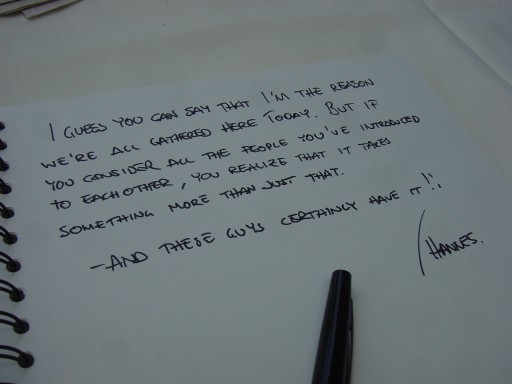 I GUESS YOU CAN SAY THAT I'M THE REASON
WE'RE ALL GATHERED HERE TODAY. BUT IF
YOU CONSIDER ALL THE PEOPLE YOU'VE INTRODUCED
TO EACHOTHER, YOU REALIZE THAT IT TAKES
SOMETHING MORE THAN JUST THAT.
-AND THESE GUYS CERTAINLY HAVE IT!!
/HANNES.